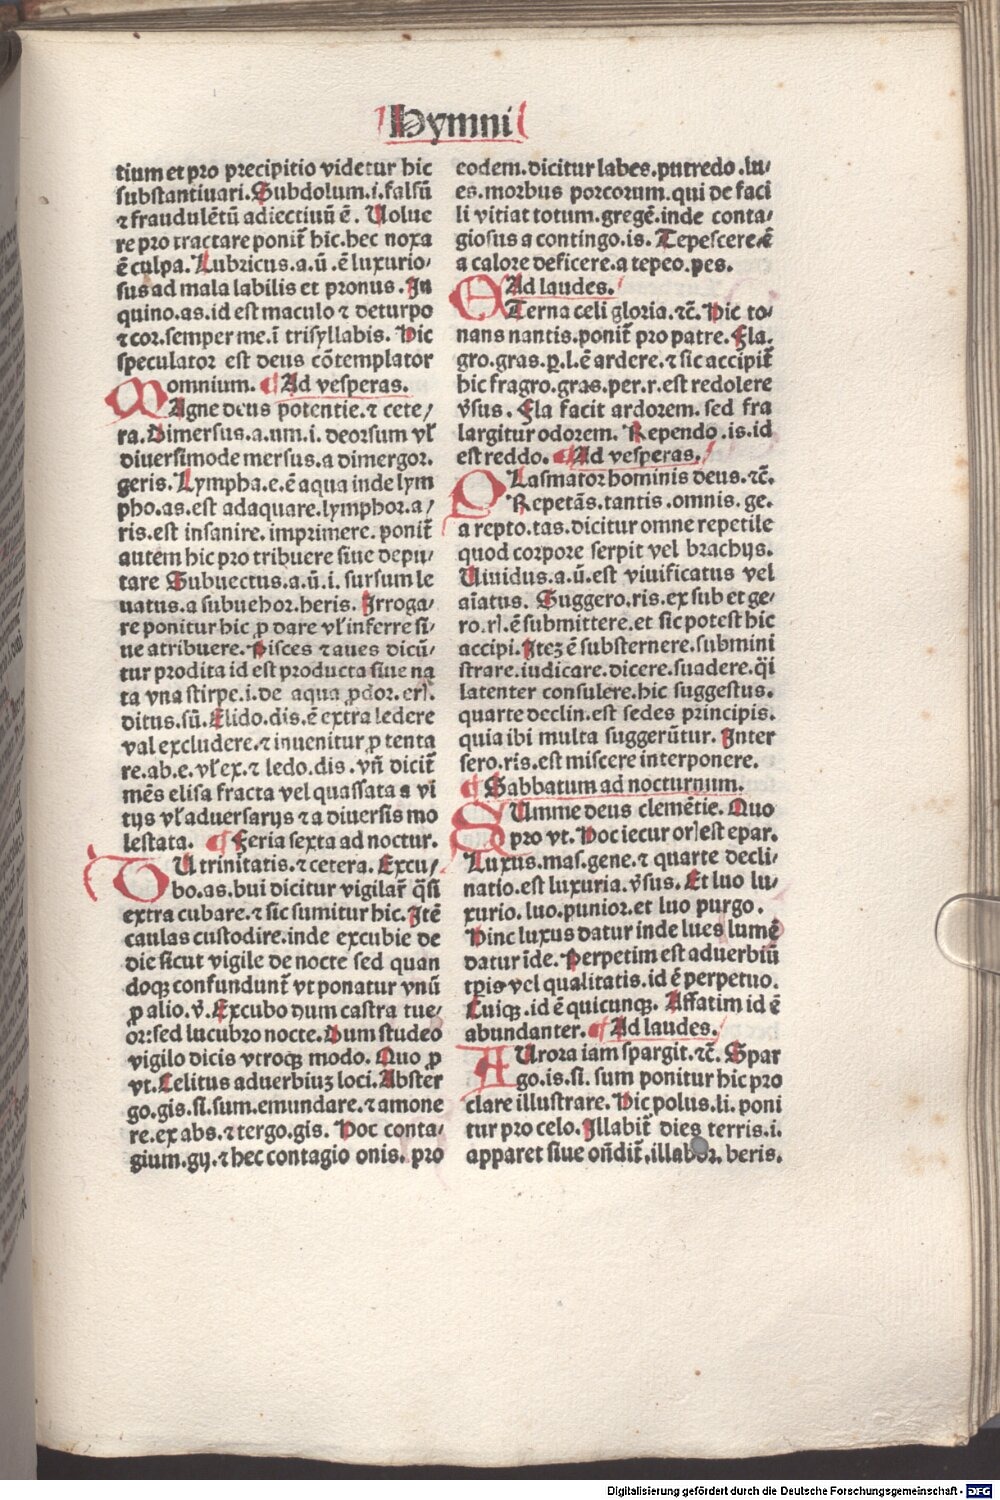 Hymni
tium et pro precipitio videtur hic
substantiuari. Subdolum .i. falsū
⁊ fraudulētū adiectiuū ē. Uolue
re pro tractare ponit̄ hic. hec noxa
ē culpa. Lubricus.a.ū. ē luxurio⸗
sus ad mala labilis et pronus. In
quino.as. id est maculo ⁊ deturpo
⁊ cor. semper me.i trisyllabis. Hic
speculator est deus cōtemplator
omnium. ¶ Ad vesperas.
MAgne deus potentie. ⁊ cete⸗
ra. Dimersus.a.um.i. deorsum vł
diuersimode mersus. a dimergor.
geris. Lympha.e. ē aqua inde lym
pho.as. est adaquare. lymphor.a⸗
ris. est insanire. imprimere. ponit̄
autem hic pro tribuere siue depu⸗
tare Subuectus.a.ū.i. sursum le
uatus. a subuehor.heris. Irroga⸗
re ponitur hic ꝓ dare vł inferre si⸗
ue atribuere. Pisces ⁊ aues dicū⸗
tur prodita id est producta siue na
ta vna stirpe.i.de aqua ꝓdor.erł.
ditus.sū. Elido.dis. ē extra ledere
val excludere. ⁊ inuenitur ꝓ tenta
re. ab.e. vł ex. ⁊ ledo.dis. vn̄ dicit̄
mēs elisa fracta vel quassata a vi
tijs vł aduersarijs ⁊ a diuersis mo
lestata. ¶ Feria sexta ad noctur.
TU trinitatis. ⁊ cetera. Excu⸗
bo.as.bui dicitur vigilar̄ q̄si
extra cubare. ⁊ sic sumitur hic. Itē
caulas custodire. inde excubie de
die sicut vigile de nocte sed quan
doqꝫ confundunt̄ vt ponatur vnū
ꝓ alio. v̄. Excubo dum castra tue⸗
or: sed lucubro nocte. Dum studeo
vigilo dicis vtroqꝫ modo. Quo ꝓ
vt. Celitus aduerbiuꝫ loci. Abster
go.gis.si.sum. emundare. ⁊ amone
re. ex abs. ⁊ tergo.gis. Hoc conta⸗
gium.gij. ⁊ hec contagio onis. pro
eodem. dicitur labes. putredo. lu⸗
es. morbus porcorum. qui de faci
li vitiat totum. gregē. inde conta⸗
giosus a contingo.is. Tepescere ē
a calore deficere. a tepeo.pes.
Ad laudes.
ETerna celi gloria. ⁊c̄. Hic to⸗
nans nantis. ponit̄ pro patre. Fla.
gro.gras. ꝑ.l. ē ardere. ⁊ sic accipit̄
hic fragro.gras. per.r. est redolere
v̄sus. Fla facit ardorem. sed fra
largitur odorem. Rependo.is. id
est reddo. ¶ Ad vesperas.
PLasmator hominis deus. ⁊c̄.
Repetās. tantis. omnis. ge.
a repto.tas. dicitur omne repetile
quod corpore serpit vel brachijs.
Uiuidus.a.ū. est viuificatus vel
aīatus. Suggero.ris. ex sub et ge⸗
ro.rł. ē submittere. et sic potest hic
accipi. Iteꝫ ē substernere. submini
strare. iudicare. dicere. suadere. q̄i
latenter consulere. hic suggestus.
quarte declin. est sedes principis.
quia ibi multa suggerūtur. Inter
sero.ris. est miscere interponere.
¶ Sabbatum ad nocturnum.
SUmme deus clemētie. Quo
pro vt. Hoc iecur orł est epar.
Luxus. mas. gene. ⁊ quarte decli⸗
natio. est luxuria. v̄sus. Et luo lu⸗
xurio. luo. punior. et luo purgo.
Hinc luxus datur inde lues lumē
datur īde. Perpetim est aduerbiū
tp̄is vel qualitatis. id ē perpetuo.
Cuiqꝫ. id ē quicunqꝫ. Affatim id ē
abundanter. ¶ Ad laudes.
AUrora iam spargit. ⁊c̄. Spar
go.is.si.sum ponitur hic pro
clare illustrare. Hic polus.li. poni
tur pro celo. Illabit̄ dies terris.i.
apparet siue on̄dit̄. illabor. beris.
Digitalisierung gefördert durch die Deutsche Forschungsgemeinschaft - DFG